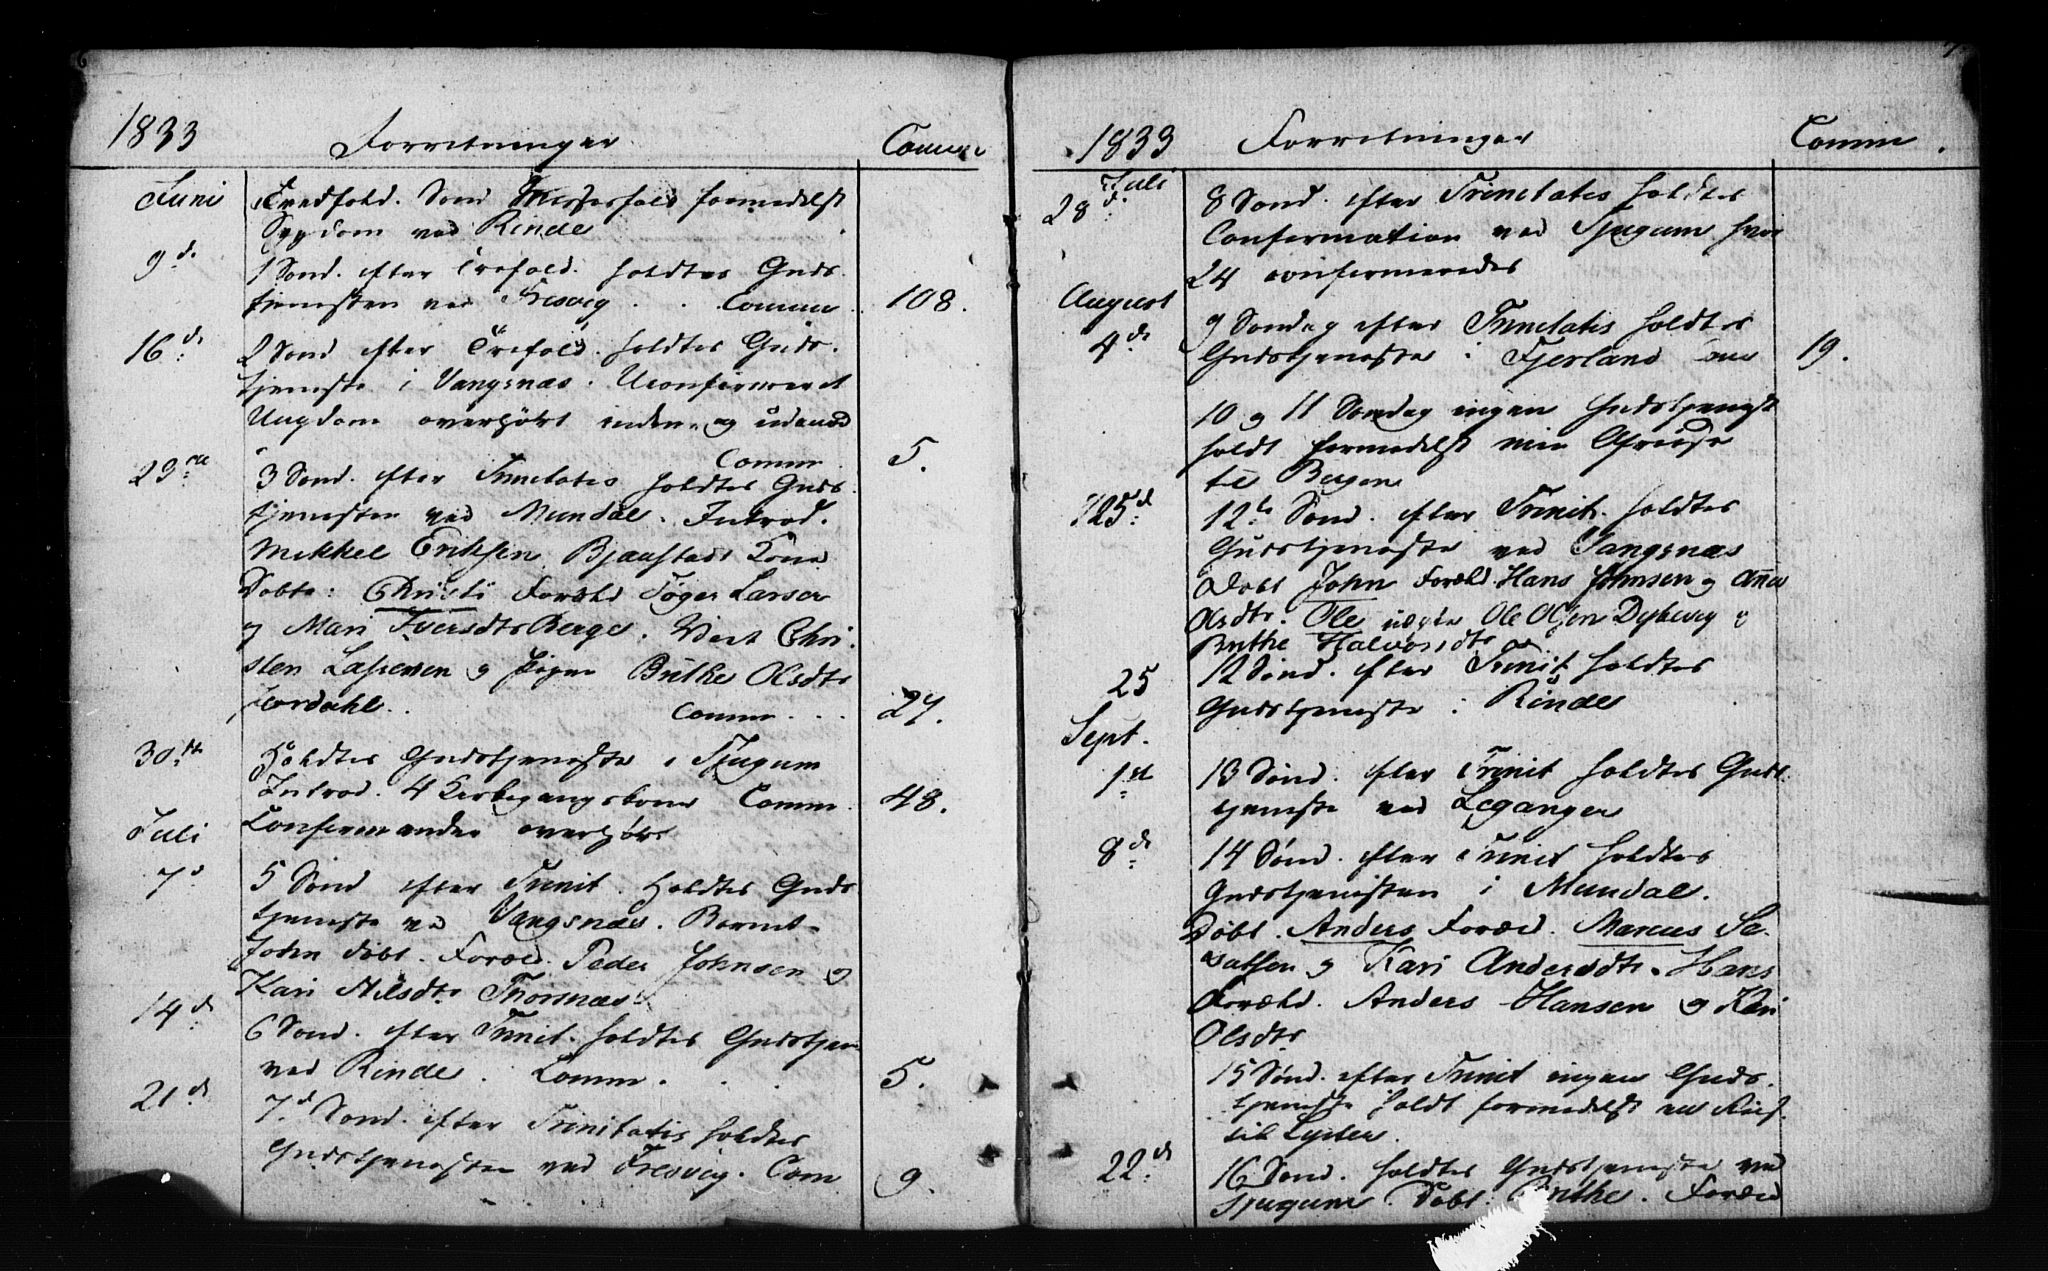 6
1833 Forretninger Commun
Juni Trefold. Sønd Messefald formedelst
Sygdom ved Rinde
9d. 1 Sønd. efter Trefold. holdtes Guds
tjenesten ved Fresvig . . Commun 108.
16d. 2 Sønd efter Trefold. holdtes Guds.
tjeneste i Vangsnæs. Uconfirmeret
Ungdom overhørt inden- og udenad
Comm. 5.
23 3 Sønd. efter Trinitatis holdtes Guds
tjenesten ved Mundal. Introd.
Mikkel Eriksen Bjaastads Kone
Døbte: Christi Foræld Tøger Larsen
og Mari Iversdtr Berge. Viet Chri-
sten Lassesen og Pigen Brithe Olsdtr
Jordahl. Comm . . . 27.
30te Holdtes Gudstjeneste i Tjugum
Introd 4 Kirkegangskoner Comm 48.
Juli Confirmander overhørt
7d 5 Sønd efter Trinit. Holdtes Guds
tjeneste ved Vangsnæs. Barnet
John døbt. Foræld. Peder Johnsen og
Kari Nilsdtr Thorsnæs
14d 6 Sønd. efter Trinit. holdtes Gudstjen
ved Rinde. Comm. . . 5.
21d 7d Sønd. efter Trinitatis holdtes
Gudstjenesten ved Fresvig. Com 9.
7
1833 Forretninger Commun.
Juli
28d. 8 Sønd. efter Trinitatis holdtes
Confirmation ved Tjugum hvor
24 confirmeredes
August
4de 9 Søndag efter Trinitatis holdtes
Gudstjeneste i Fjerland 19.
10 og 11 Søndag ingen Gudstjeneste
holdt formedelst min Afreise
til Bergen
25d. 12te Sønd. efter Trinit. holdtes
Gudstjeneste ved Vangsnæs
Døbt John Foræld. Hans Johnsen og Anna
Olsdtr. Ole uægte Ole Olsen Dybevig og
Brithe Halvorsdtr
25 12 Sønd. efter Trinit holdtes
Gudstjeneste i Rinde
Sept.
1st 13 Sønd. efter Trinit holdtes Guds
tjeneste ved Leganger
8de 14 Sønd. efter Trinit holdtes
Gudstjenesten i Mundal.
Døbt. Anders Foræld. Marcus La-
og Kari Andersdtr. Hans
Foræld. Anders Hansen og Kari
Olsdtr
15 Sønd. efter Trinit ingen Guds.
tjeneste holdt formedelst en Reise
til Lyster.
22d. 16 Sønd. holdtes Gudstjeneste ved
Tjugum Døbt: Brithe. Foræld